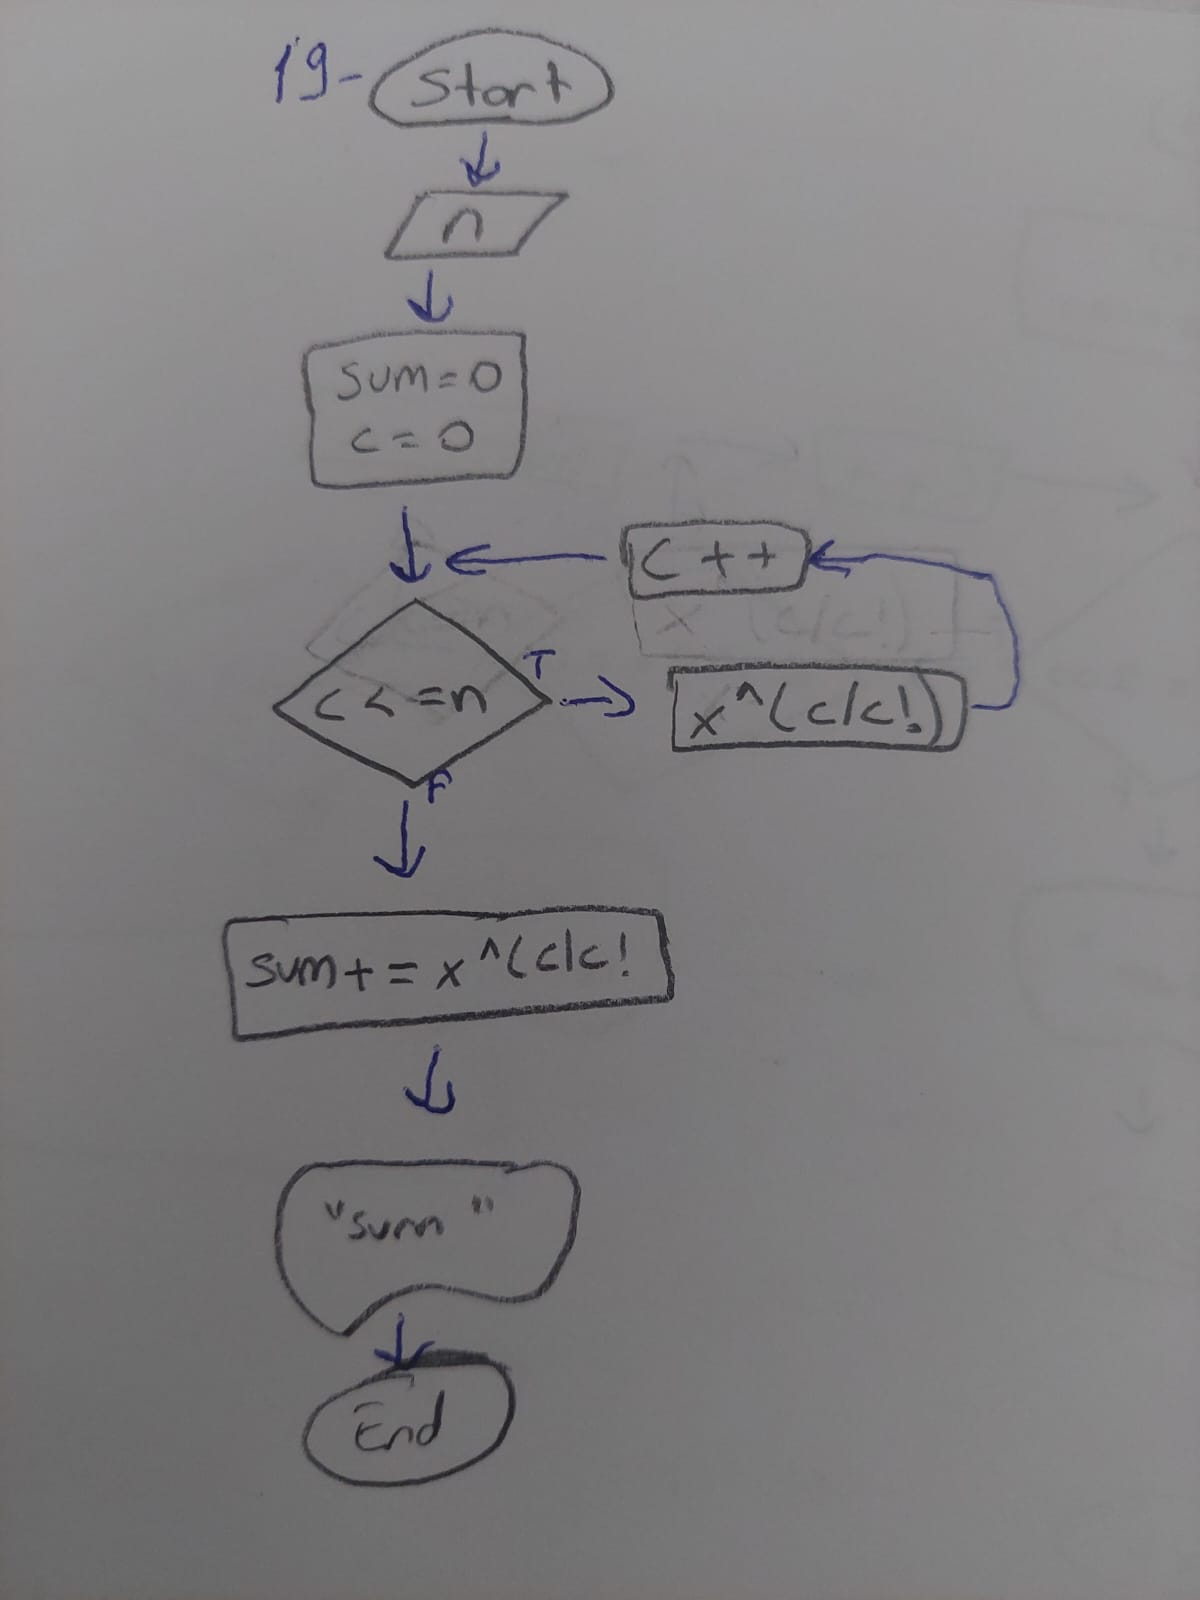 19-
Start
n
sum=0
c=0
c++
x (c/c!)
c<=n
T
x^(c/c!)
F
sum+=x^(c/c!
"sum"
End